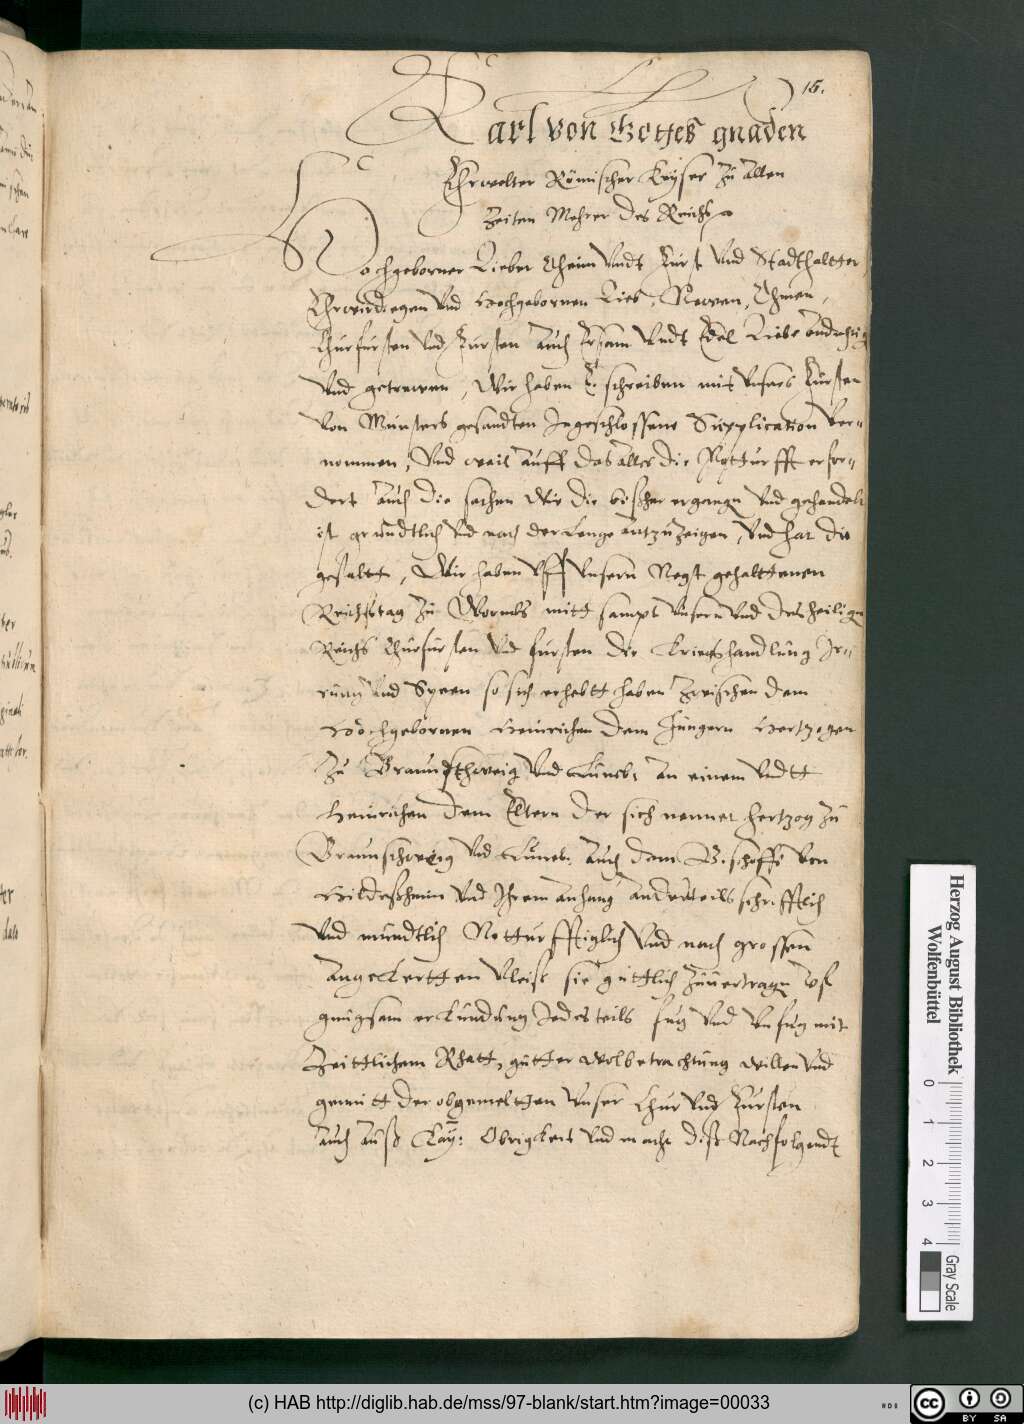 15.
Karl von Gottes gnaden
Ehrwelter Römischer Keyser zu allen
Zeiten Mehrer des Reichs
Hochgeborner Lieber Oheim Undt Fürst Vnd Stadthaltter
Ehrwirdiegen Vnd Hochgebornen Lieb, Neven, Ohmen,
Churfürsten Vnd Fürsten Auch Ersam Undt Edel Liebe andechtig
Vnd getrewen, Wir haben E. schreiben mit Vnsers Fürsten
Von Münsters gesandten Ingeschlossene Supplication Ver-
nommen, Vnd weil Auff das alles die Notturfft erfor-
dert Auch die sachen Wie die bißher ergangn Vnd gehandelt
ist gründtlich Vnd nach der Lenge antzuzeigen, Vnd hat die
gestaltt, Wir haben Vff Vnsern Negst gehalttenen
Reichstag Zu Wormbs mitt sampt Vnsern Vnd des heiligen
Reichs Churfürsten Vnd fursten der Kriegshandlung Ir-
rung Vnd Speen so sich erhebtt haben Zwischen dem
Hochgebornen Heinrichen dem Jüngern Hertzogen
Zu Braunschweig Vnd Lüneb: An einem Vndtt
Heinrichen dem Eltern der sich nennet hertzog Zu
Braunschweig Vnd Lüneb: Auch dem Bischoffe von
Hildeßheim Vnd Ihrem anhang anderteils schrifftlich
Vnd mündtlich Notturfftiglich Vnd nach grossen
Angekertten Vleiß sie güttlich Zuuertragn
gnugsam erkundung Jedesteils fug Vnd Vnfug mit
Zeittlichem Rhatt, gutter wolbetrachtung willen Vnd
gemütt der obgemeltten Vnser Chur Vnd Fürsten
Auch Auß Kay: Obrigkeit Vnd macht diß Nachfolgendt
Herzog August Bibliothek
Wolfenbüttel
0 1 2 3 4
Gray Scale
(c) HAB http://diglib.hab.de/mss/97-blank/start.htm?image=00033
cc BY SA